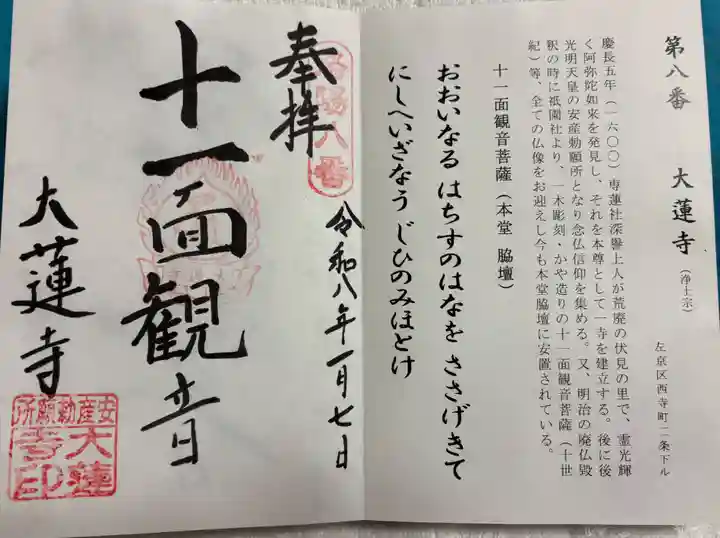 第八番　大蓮寺（浄土宗）
左京区西寺町二条下ル
慶長五年（一六〇〇）専蓮社深譽上人が荒廃の伏見の里で、霊光輝
く阿弥陀如来を発見し、それを本尊として一寺を建立する。後に後
光明天皇の安産勅願所となり念仏信仰を集める。又、明治の廃仏毀
釈の時に祇園社より、一木彫刻・かや造りの十一面観音菩薩（十世
紀）等、全ての仏像をお迎えし今も本堂脇壇に安置されている。
十一面観音菩薩（本堂　脇壇）
おおいなる はちすのはなを ささげきて
にしへいざなう じひのみほとけ
奉拝
洛陽八番
令和八年一月七日
十一面観音
大蓮寺
安産勅願所
大蓮
寺印